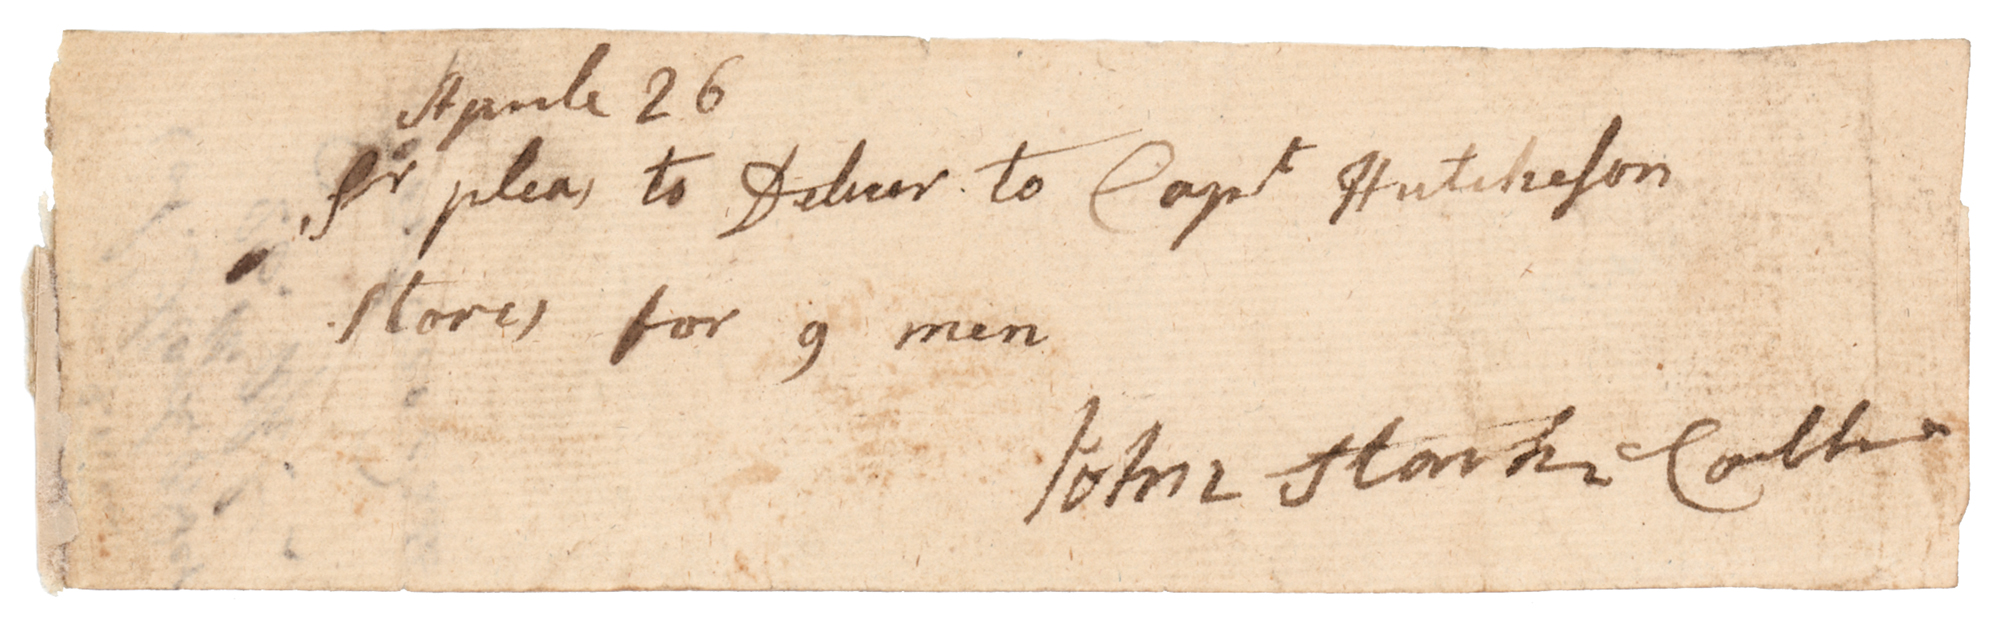 Aprile 26
Sr pleas to Deliver to Capt Hutcheson
Stores for 9 men
John Stark Coll